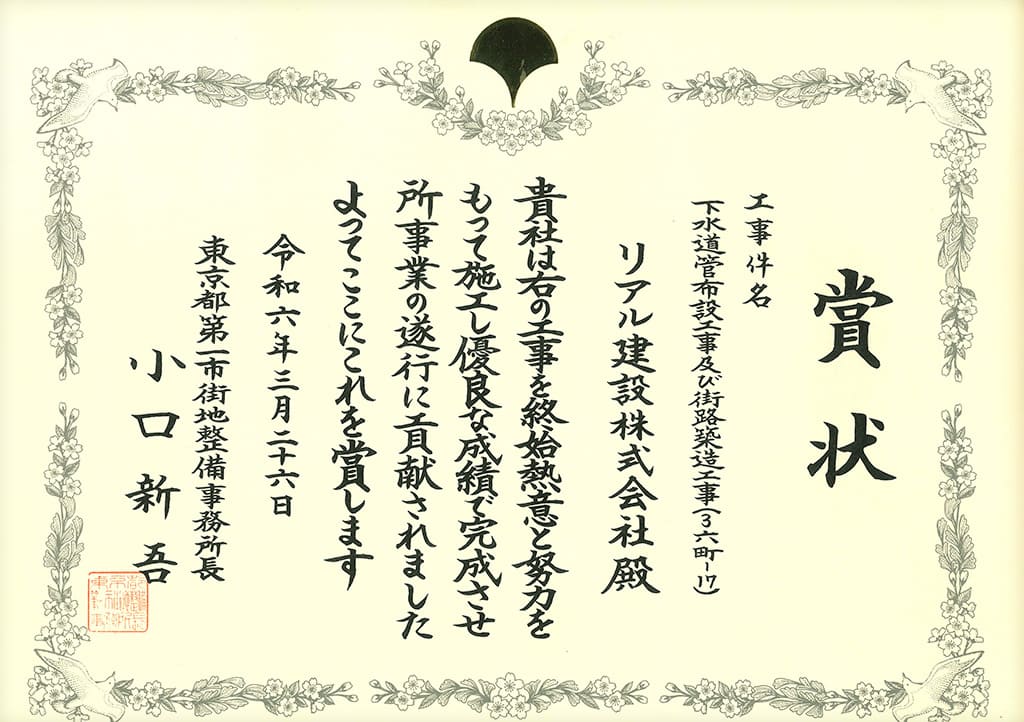 賞状
工事件名
下水道管布設工事及び街路築造工事(3六町-17)
リアル建設株式会社殿
貴社は右の工事を終始熱意と努力を
もって施工し優良な成績で完成させ
所事業の遂行に貢献されました
よってここにこれを賞します
令和六年三月二十六日
東京都第一市街地整備事務所長
小口新吾